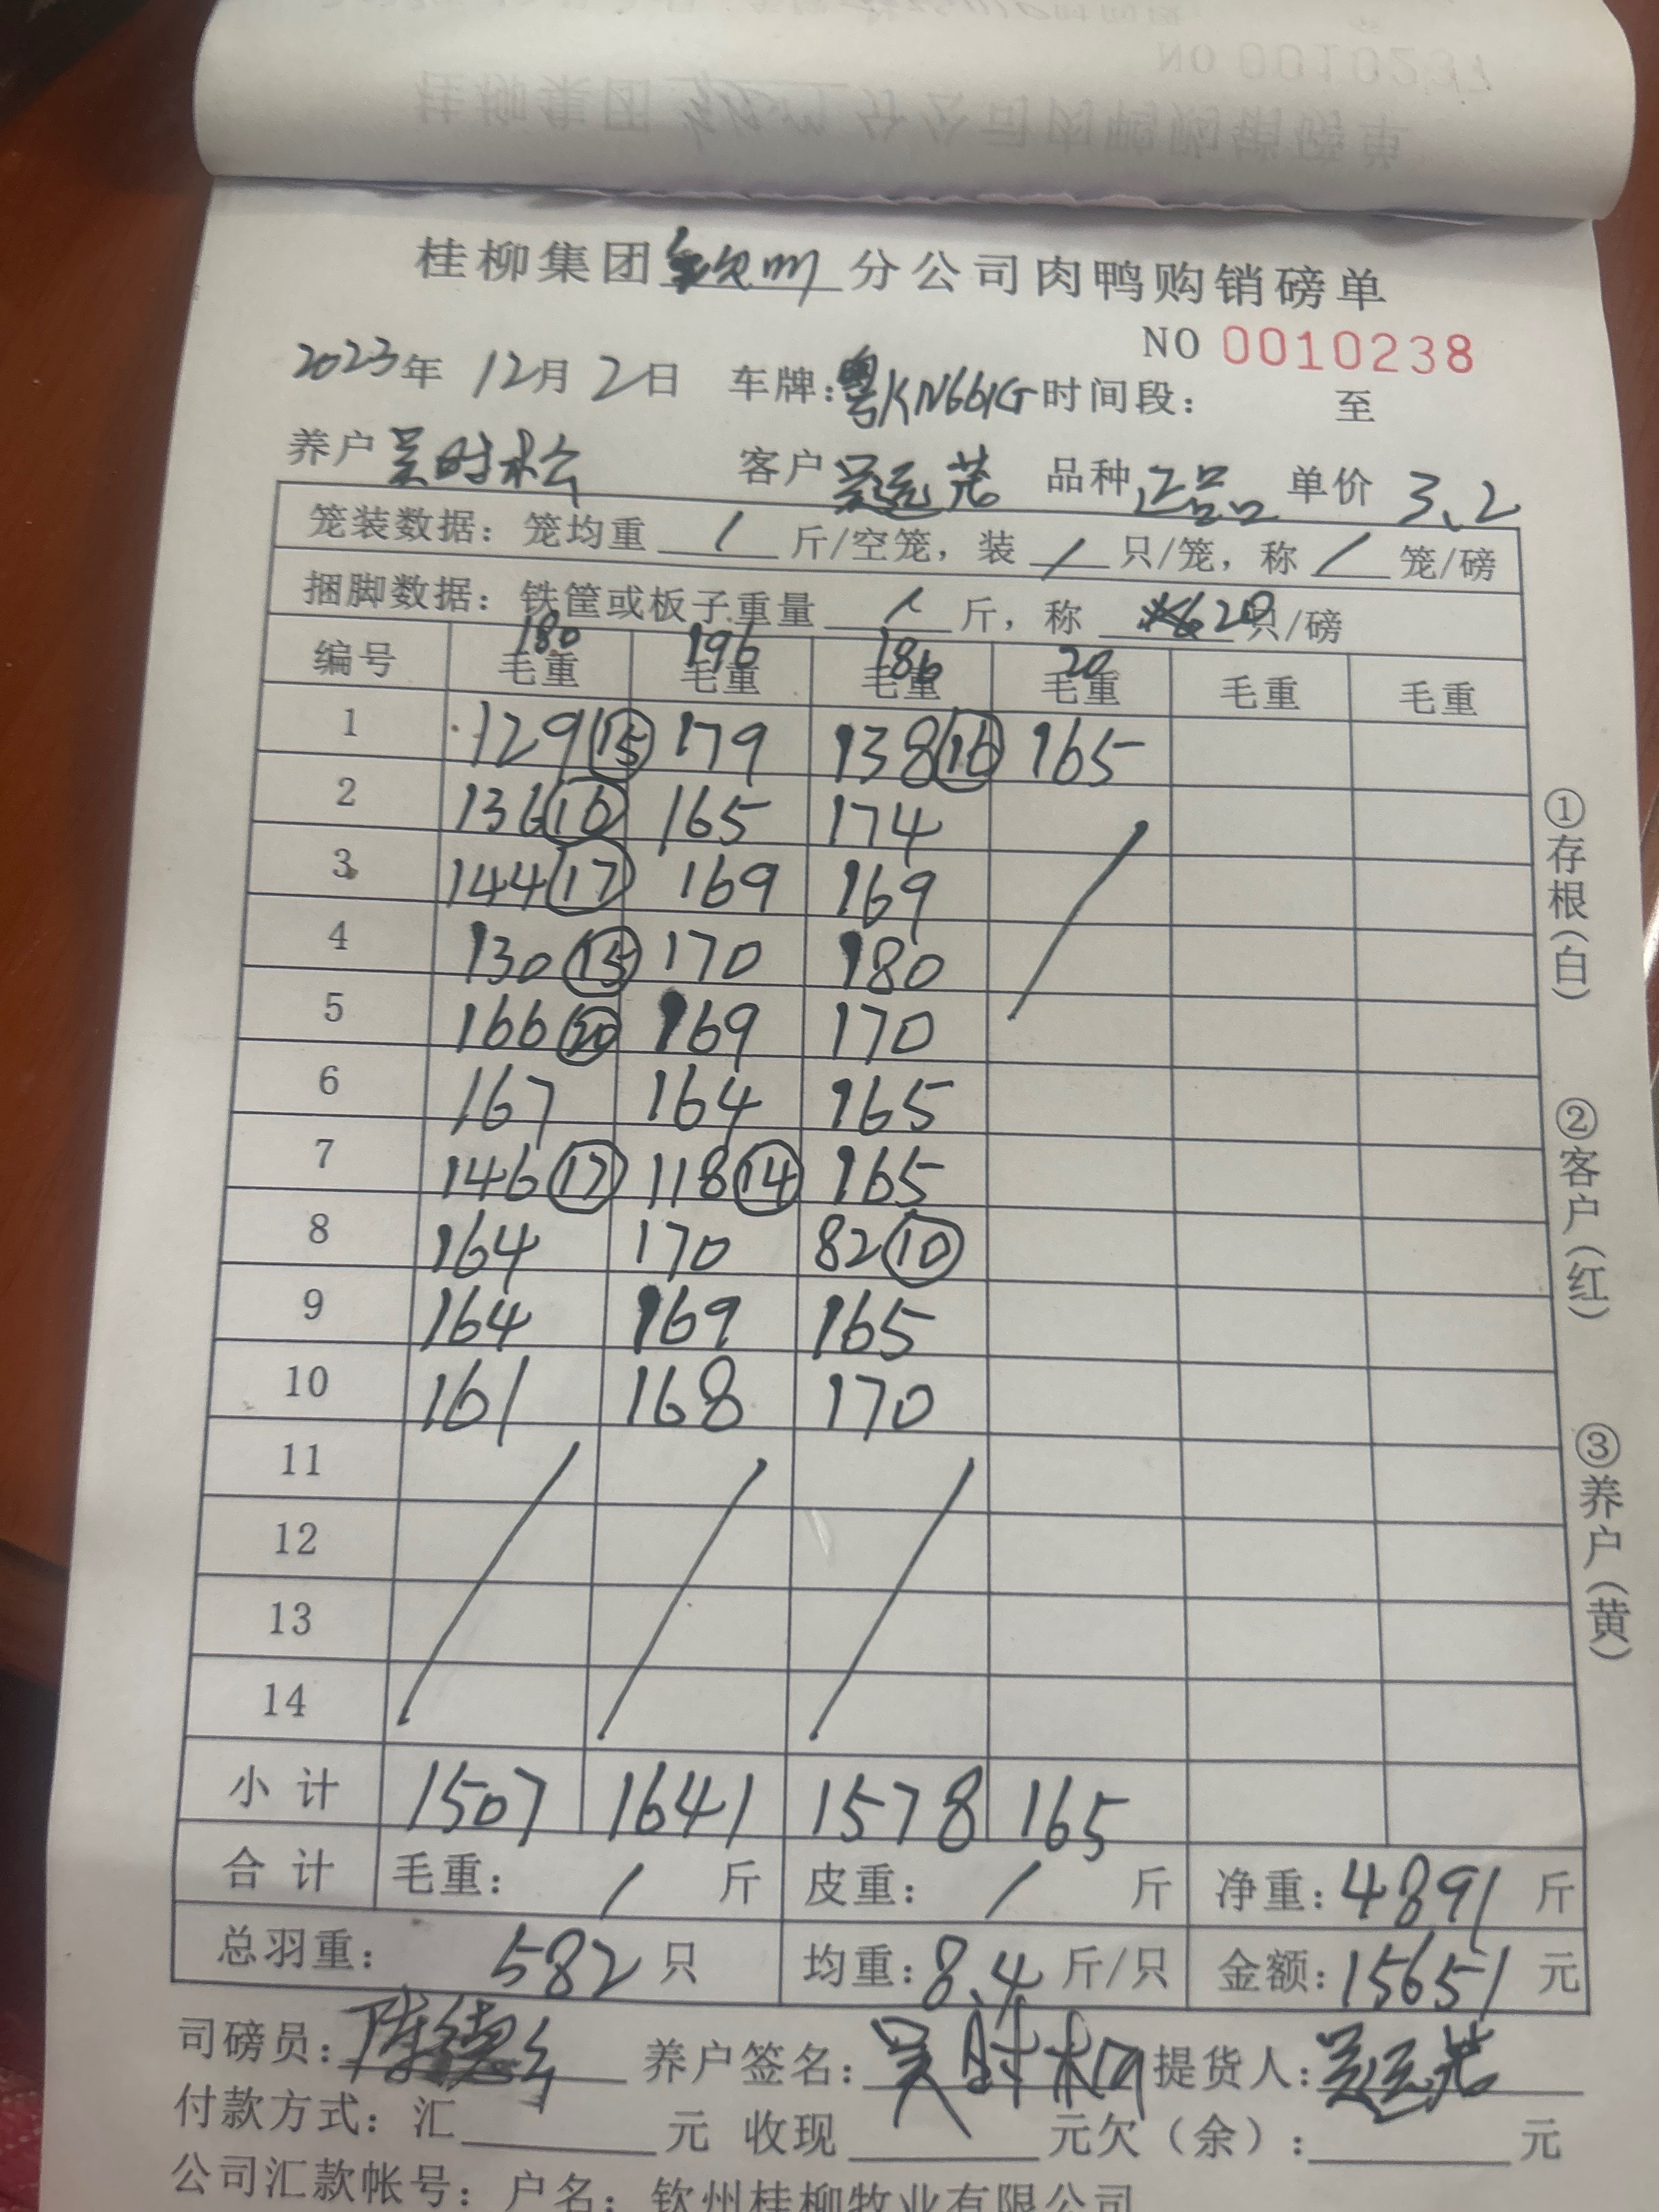 桂柳集团钦州分公司肉鸭购销磅单
NO 0010238
2023年 12月 2日 车牌:粤KN661G 时间段: 至
养户 吴时松 客户 吴远茂 品种 正品 单价 3.2
笼装数据: 笼均重 / 斤/空笼, 装 / 只/笼, 称 / 笼/磅
捆脚数据: 铁筐或板子重量 / 斤, 称 20只/磅
180 196 186 20
编号 毛重 毛重 毛重 毛重 毛重 毛重
1 129⑮ 179 138⑯ 165
2 136⑯ 165 174
3 144⑰ 169 169
4 130⑮ 170 180
5 166⑳ 169 170
6 167 164 165
7 146⑰ 118⑭ 165
8 164 170 82⑩
9 164 169 165
10 161 168 170
11
12
13
14
小计 1507 1641 1578 165
合计 毛重: / 斤 皮重: / 斤 净重: 4891 斤
总羽重: 582 只 均重: 8.4 斤/只 金额: 15651 元
司磅员: 陈德 养户签名: 吴时松 提货人: 吴远茂
付款方式: 汇 元 收现 元欠(余): 元
公司汇款帐号: 户名: 钦州桂柳牧业有限公司
①存根(白)
②客户(红)
③养户(黄)